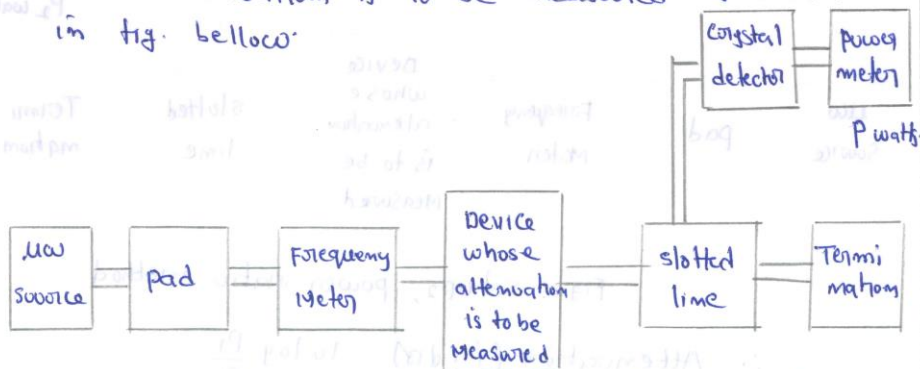 is to be
in fig. belloco.
Crystal
detector
power
meter
P watts.
MW
Source
pad
Frequeny
Meter
Device
whose
attenuation
is to be
Measured
slotted
line
Termi
nation